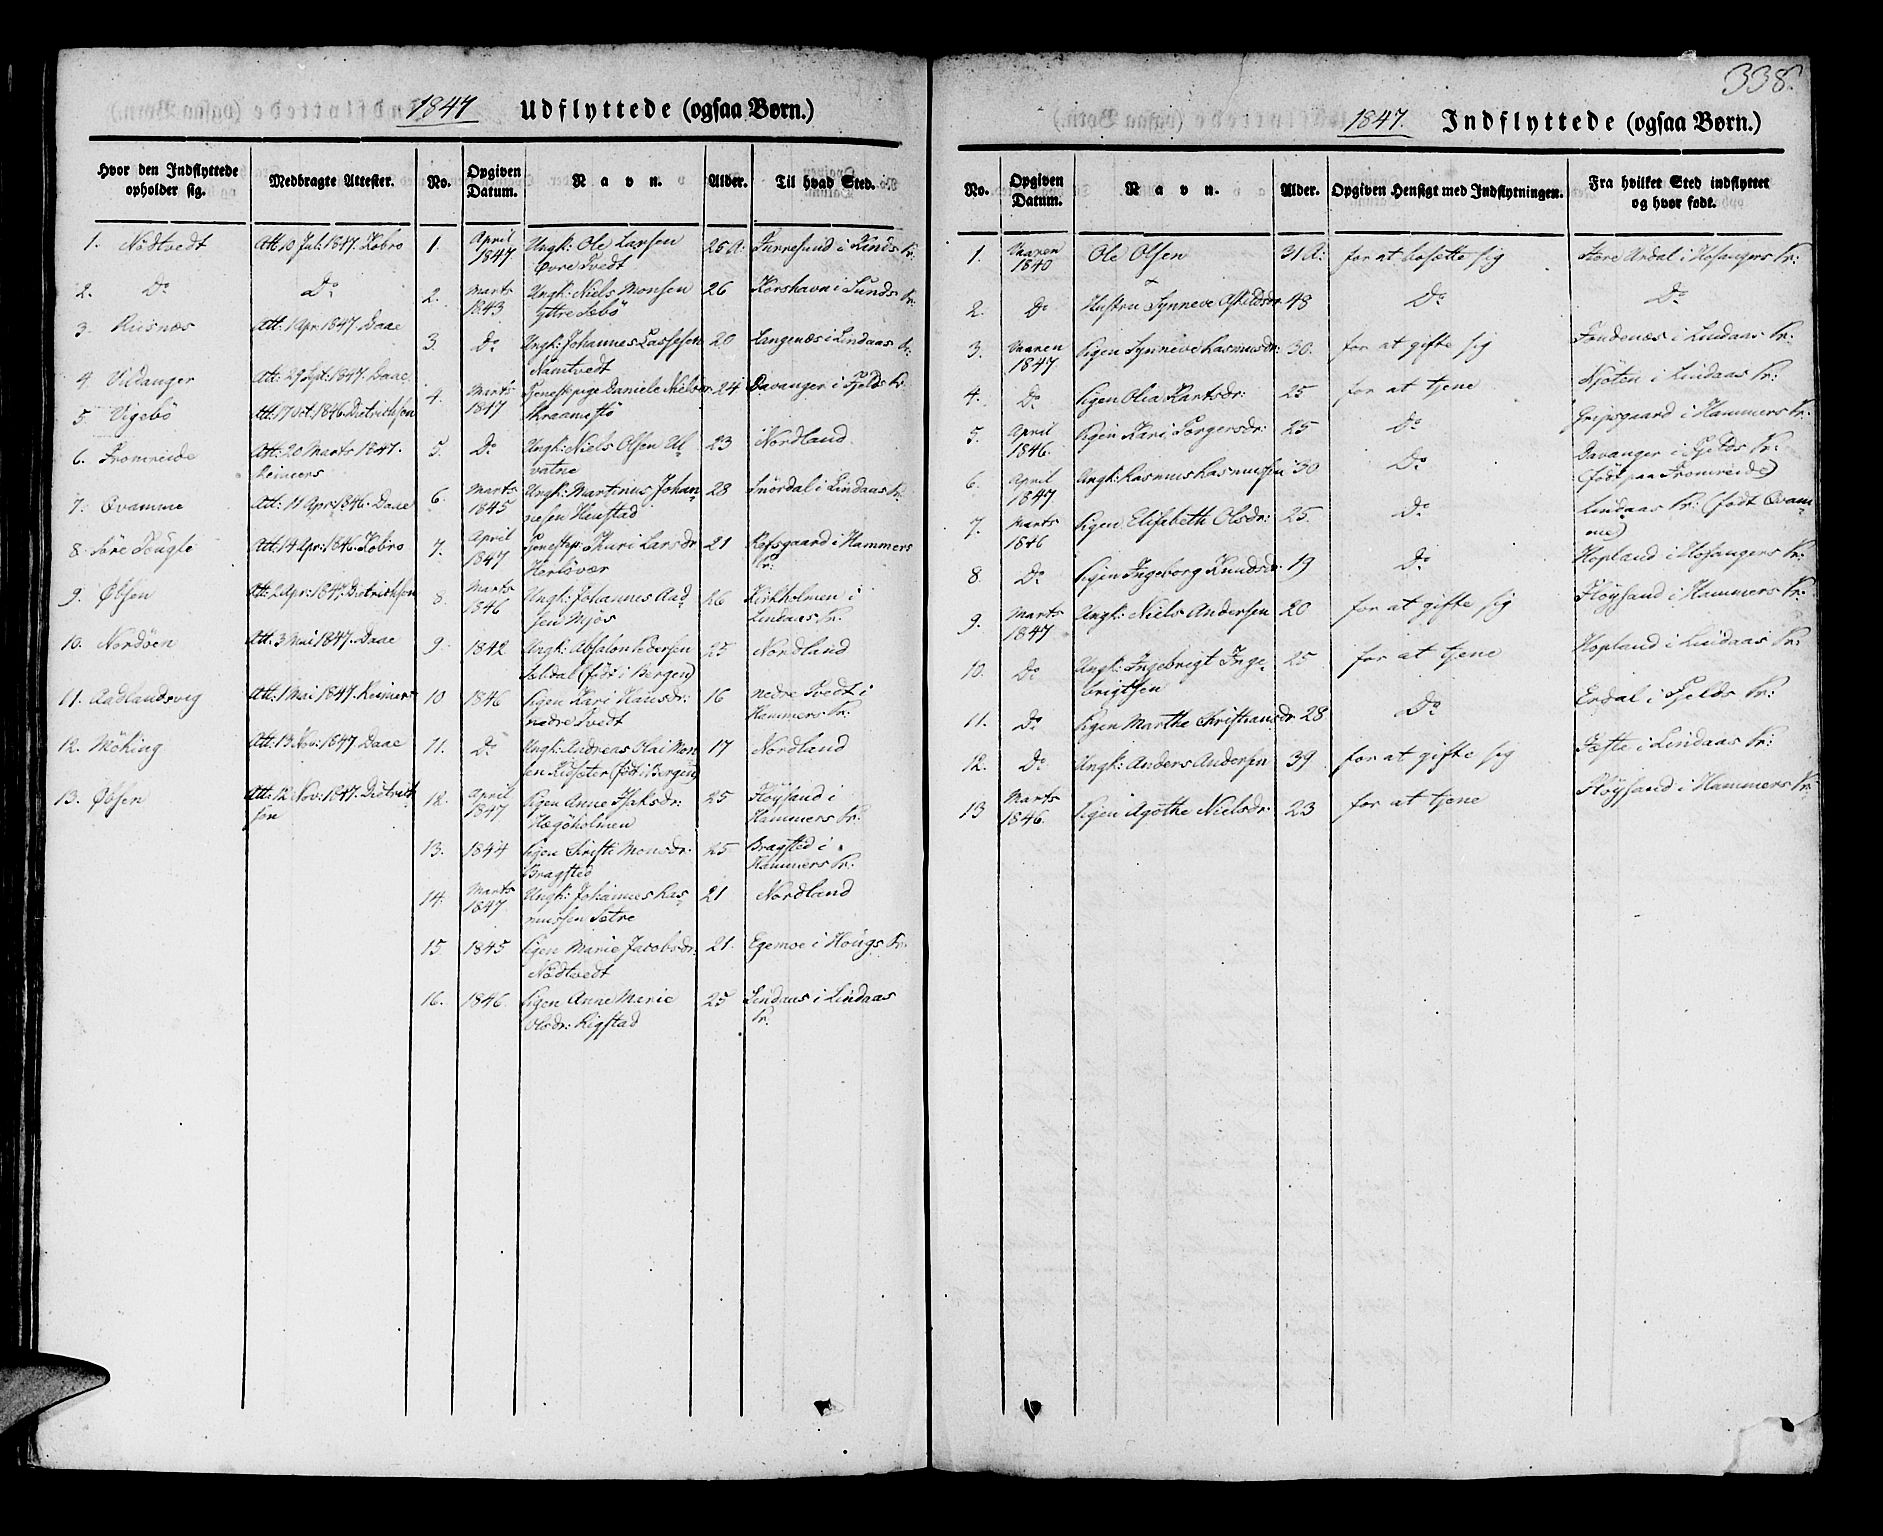 338.
1847 Udflyttede (ogsaa Børn.)
Hvor den Indflyttede opholder sig. Medbragte Attester.
1. Nödtvedt Att: 10 Jul: 1847. Kobro
2. Do Do
3. Risnæs Att: 1 Apr: 1847. Daae
4. Vildanger Att: 29 Sept: 1847. Daae
5. Vigebö Att: 17 Oct: 1846. Dietrichsen
6. Fromreide Att: 20 Marts 1847.
Reimers
7. Ovamme Att: 11 Apr: 1846. Daae
8. Söre Teugle Att: 14 Apr: 1846. Kobro
9. Öksen Att: 2 Apr: 1847. Dietrichson
10. Nordöen Att: 3 Mai 1847. Daae
11. Aadlandsvig Att: 1 Mai 1847. Reimers
12. Möking Att: 13 Nov: 1847. Daae
13. Öksen Att: 12 Nov: 1847. Dietrich
sen
No. Opgiven Datum. Navn. Alder. Til hvad Sted.
1. April 1847 Ungk: Ole Larsen 25 A: i Sunds Pr:
Övre Tvedt
2. Marts 1843 Ungk: Niels Monsen 26 Korshavn i Sunds Pr:
yttre Sæbö
3. Do Ungk: Johannes Lassesen 20 Langenæs i Lindaas Pr:
Namtvedt
4. Marts 1847 Tjenestepige Daniele Nielsdr 24 Davanger i Fjelds Pr:
5. Do Ungk: Niels Olsen Ul 23 Nordland
vatne
6. Marts 1845 Ungk: Martinus Johan= 28 i Lindaas Pr:
nesen Husstad
7. April 1847 Tjenestep: Thuri Larsdr 21 Refsgaard i Hammers
Herlövær Pr:
8. Marts 1846 Ungk: Johannes Aad= 26 Kirkholmen i
sen Mjös Lindaas Pr:
9. 1842 Ungk: Absalon Pedersen 25 Nordland
Seldal (född i Bergen)
10 1846 Pigen Kari Hansdr: 16 nedre Tvedt i
nedre Tvedt Hammers Pr:
11. Do Ungk: Andreas Olai Mon 17 Nordland
sen Lidseter (född i Bergen)
12. April 1847 Pigen Anne Isaksdr: 25 Flöysand i
Hægöholmen Hammers Pr:
13. 1844 Pigen Christi Monsdr: 25 Bragsted i
Bragsted Hammers Pr:
14. Marts 1847 Ungk: Johannes Ras= 21 Nordland
mussen Setre
15. 1845 Pigen Marie Jacobsdr: 21. Egemoe i Hougs Pr:
Nödtvedt
16. 1846. Pigen Anne Marie 25 Lindaas i Lindaas
Olsdr: Rigstad Pr:
1847. Indflyttede (ogsaa Børn.)
No. Opgiven Datum. Navn. Alder. Opgiven Hensigt med Indflytningen. Fra hvilket Sted indflyttet og hvor født.
1. Vaaren 1840 Ole Olsen 31 A: for at bosætte sig Store Ardal i Hosangers Pr:
2. Do Hustru Synneve Askildsdr 48 Do Do
3. Vaaren 1847 Pigen Synneve Rasmusdr: 30. for at gifte sig Fondenæs i Lindaas Pr:
4. Do Pigen Olia Karlsdr: 25 for at tjene Njöten i Lindaas Pr:
5. April 1846. Pigen Kari Torgersdr: 25 Do Gripsgaard i Hammers Pr:
6. April 1847 Ungk: Rasmus Rasmussen 30 Do Davanger i Fjelds Pr:
(född paa Fromreide)
7. Marts 1846 Pigen Elisabeth Olsdr: 25. Do Lindaas Pr: (född Ovam=
me)
8. Do Pigen Ingeborg Knudsdr 19 Do Hopland i Hosangers Pr:
9. Marts 1847 Ungk: Niels Andersen 20 for at gifte sig Flöysand i Hammers Pr:
10. Do Ungk: Ingebrigt Inge= 25 for at tjene Hopland i Lindaas Pr:
brigtsen
11. Do Pigen Marthe Christiansdr 28 Do Erdal i Fjelds Pr:
12. Do Ungk: Anders Andersen 39 for at gifte sig Tofte i Lindaas Pr:
13 Marts 1846. Pigen Agothe Nielsdr: 23 for at tjene Flöysand i Hammers Pr: